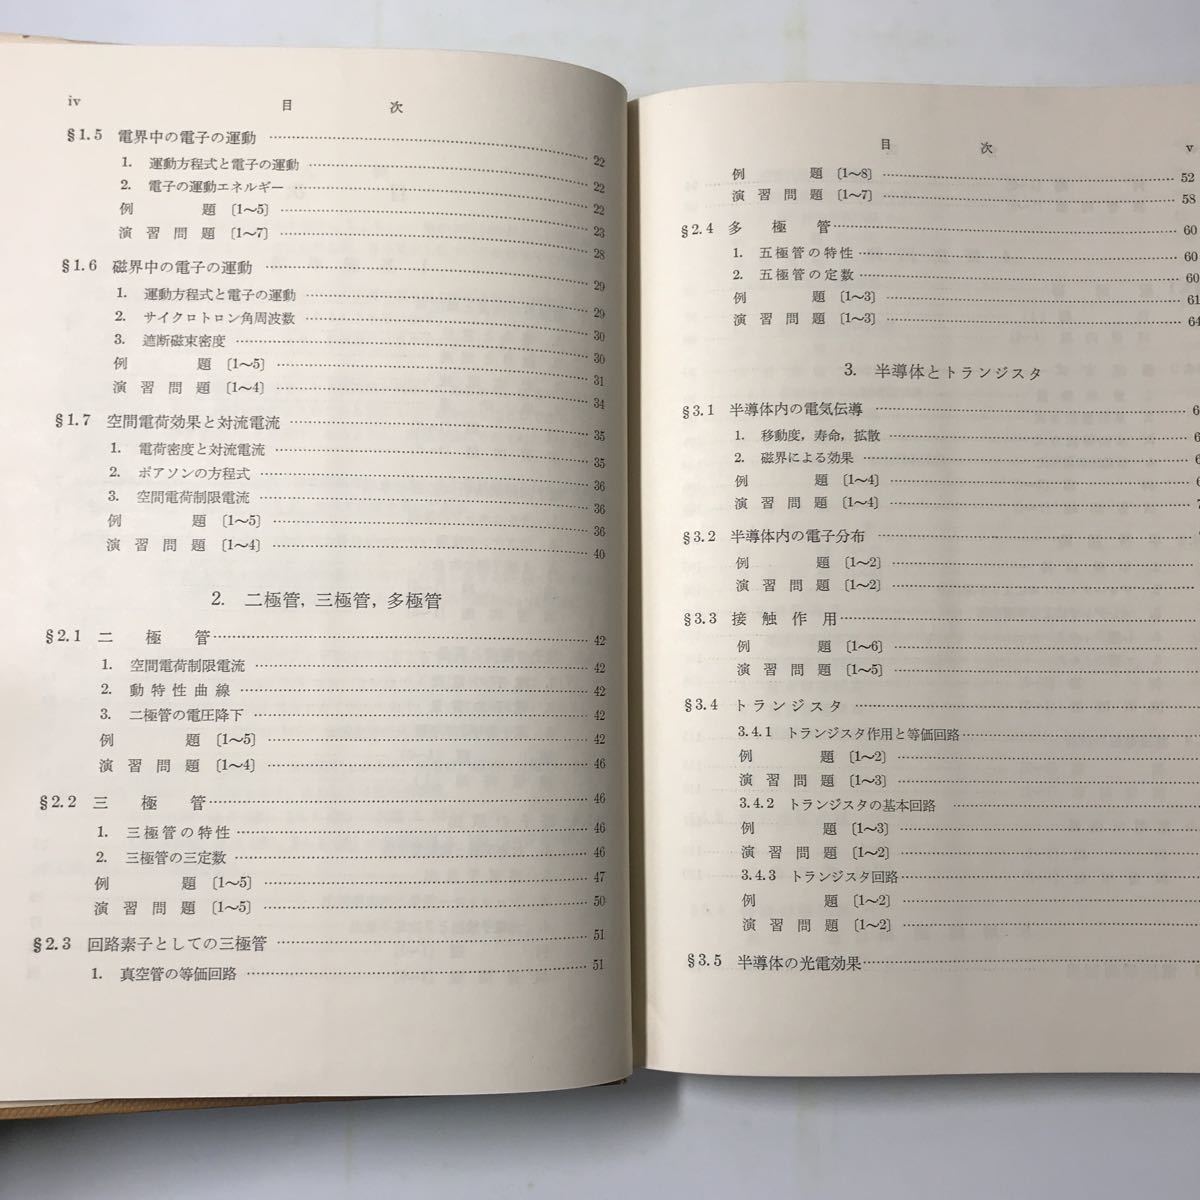 iv 目次
§1.5 電界中の電子の運動 22
1. 運動方程式と電子の運動 22
2. 電子の運動エネルギー 22
例題〔1～5〕 23
演習問題〔1～7〕 28
§1.6 磁界中の電子の運動 29
1. 運動方程式と電子の運動 29
2. サイクロトロン角周波数 30
3. 遮断磁束密度 30
例題〔1～5〕 31
演習問題〔1～4〕 34
§1.7 空間電荷効果と対流電流 35
1. 電荷密度と対流電流 35
2. ポアソンの方程式 36
3. 空間電荷制限電流 36
例題〔1～5〕 36
演習問題〔1～4〕 40
2. 二極管，三極管，多極管
§2.1 二極管 42
1. 空間電荷制限電流 42
2. 動特性曲線 42
3. 二極管の電圧降下 42
例題〔1～5〕 42
演習問題〔1～4〕 46
§2.2 三極管 46
1. 三極管の特性 46
2. 三極管の三定数 46
例題〔1～5〕 47
演習問題〔1～5〕 50
§2.3 回路素子としての三極管 51
1. 真空管の等価回路 51
目次 v
例題〔1～8〕 52
演習問題〔1～7〕 58
§2.4 多極管 60
1. 五極管の特性 60
2. 五極管の定数 60
例題〔1～3〕 61
演習問題〔1～3〕 64
3. 半導体とトランジスタ
§3.1 半導体内の電気伝導 6
1. 移動度，寿命，拡散 6
2. 磁界による効果 6
例題〔1～4〕 6
演習問題〔1～4〕 7
§3.2 半導体内の電子分布
例題〔1～2〕
演習問題〔1～2〕
§3.3 接触作用
例題〔1～6〕
演習問題〔1～5〕
§3.4 トランジスタ
3.4.1 トランジスタ作用と等価回路
例題〔1～2〕
演習問題〔1～3〕
3.4.2 トランジスタの基本回路
例題〔1～3〕
演習問題〔1～2〕
3.4.3 トランジスタ回路
例題〔1～2〕
演習問題〔1～2〕
§3.5 半導体の光電効果